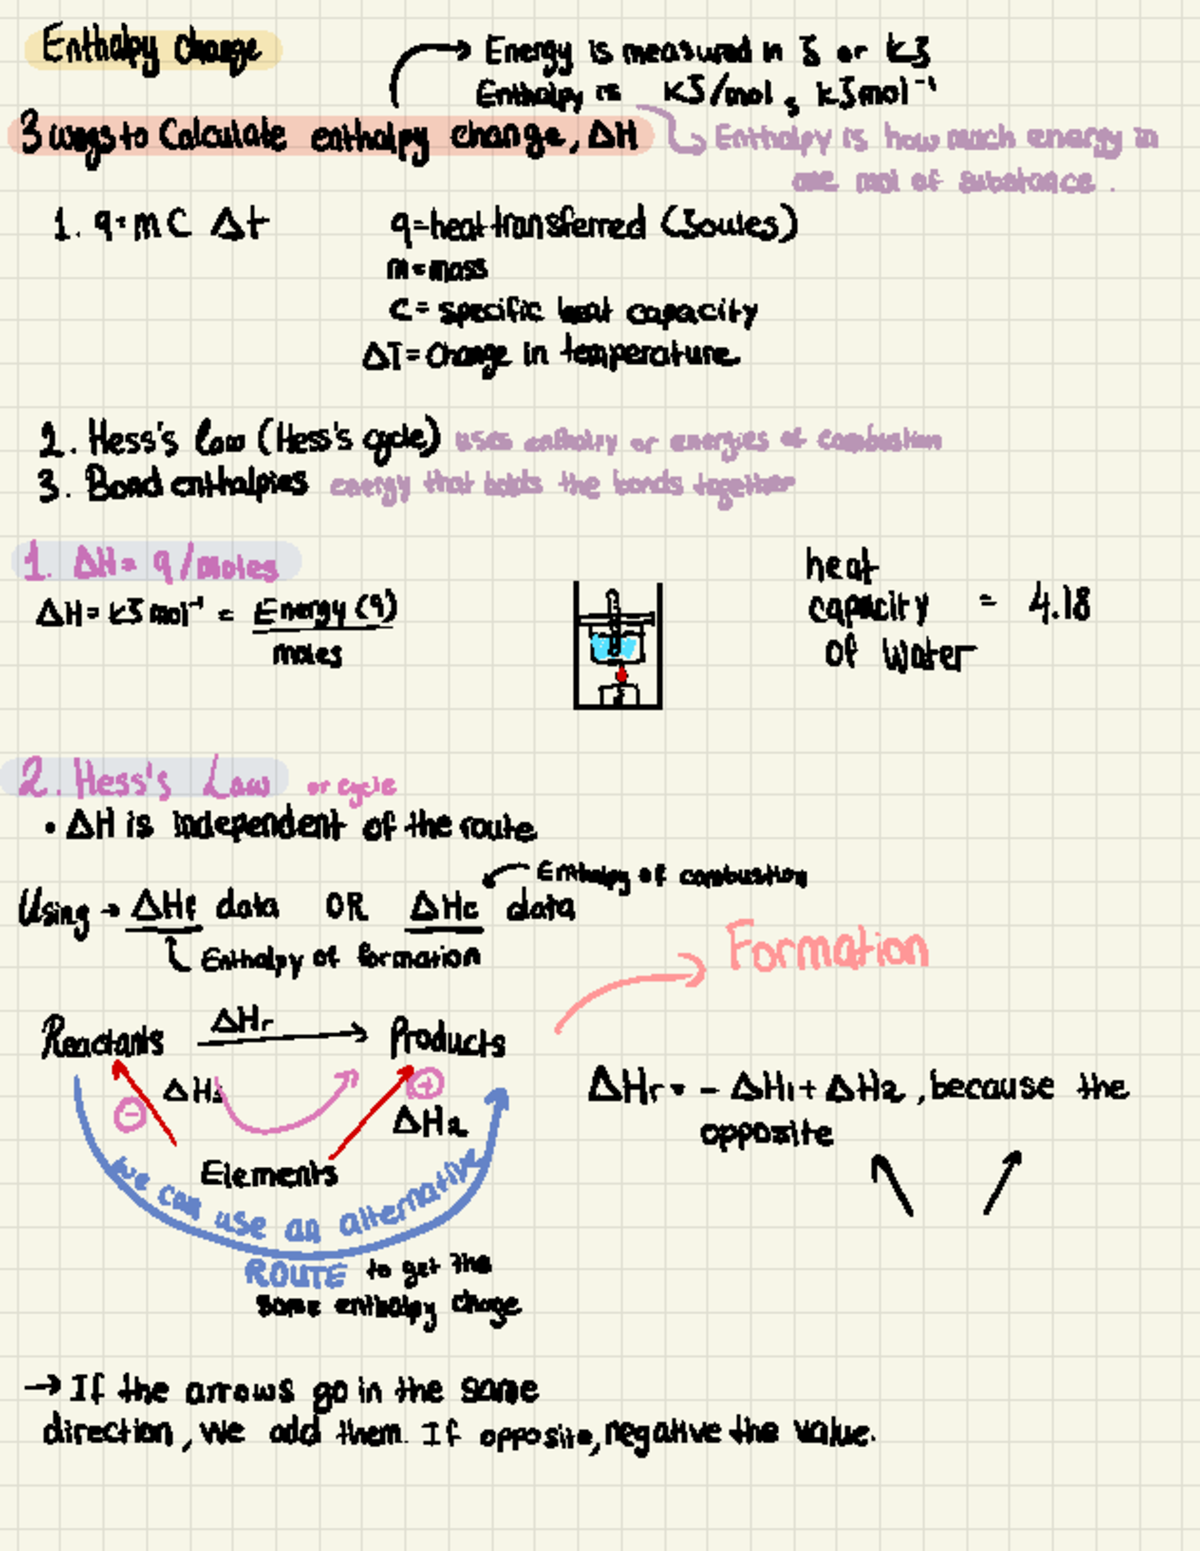 Enthalpy change
→ Energy is measured in J or kJ
Enthalpy is kJ/mol, kJmol⁻¹
3 ways to Calculate enthalpy change, ΔH
↳ Enthalpy is how much energy in
one mol of substance.
1. q=mC Δt
q=heat transferred (Joules)
m=mass
C= specific heat capacity
ΔT=Change in temperature
2. Hess's law (Hess's cycle) uses enthalpy or energies of combustion
3. Bond enthalpies energy that holds the bonds together
1. ΔH= q/moles
ΔH= kJ mol⁻¹ = Energy (q)
moles
heat
capacity = 4.18
of water
2. Hess's Law or cycle
• ΔH is independent of the route
Enthalpy of combustion
Using → ΔHf data OR ΔHc data
Enthalpy of formation
Formation
Reactants ΔHr Products
ΔH₁ +
- ΔH₂
Elements
ΔHr = - ΔH₁ + ΔH₂, because the
opposite
We can use an alternative
ROUTE to get the
same enthalpy change
→ If the arrows go in the same
direction, we add them. If opposite, negative the value.